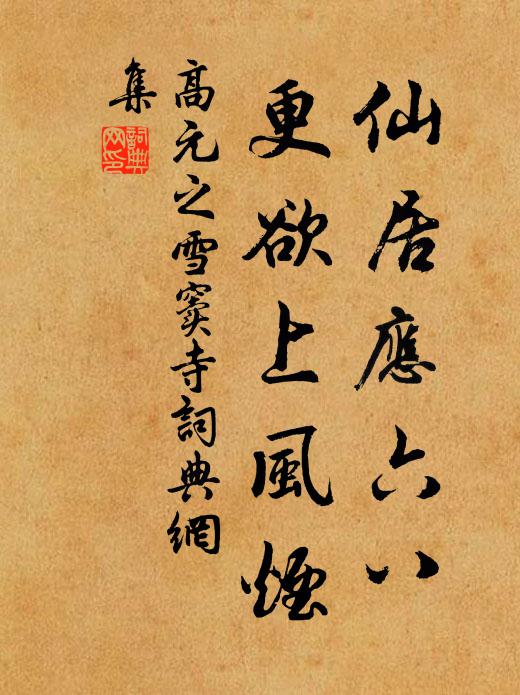 仙居應六八
更欲上風煙
高元之雪竇寺詞典網
集
詞典網印